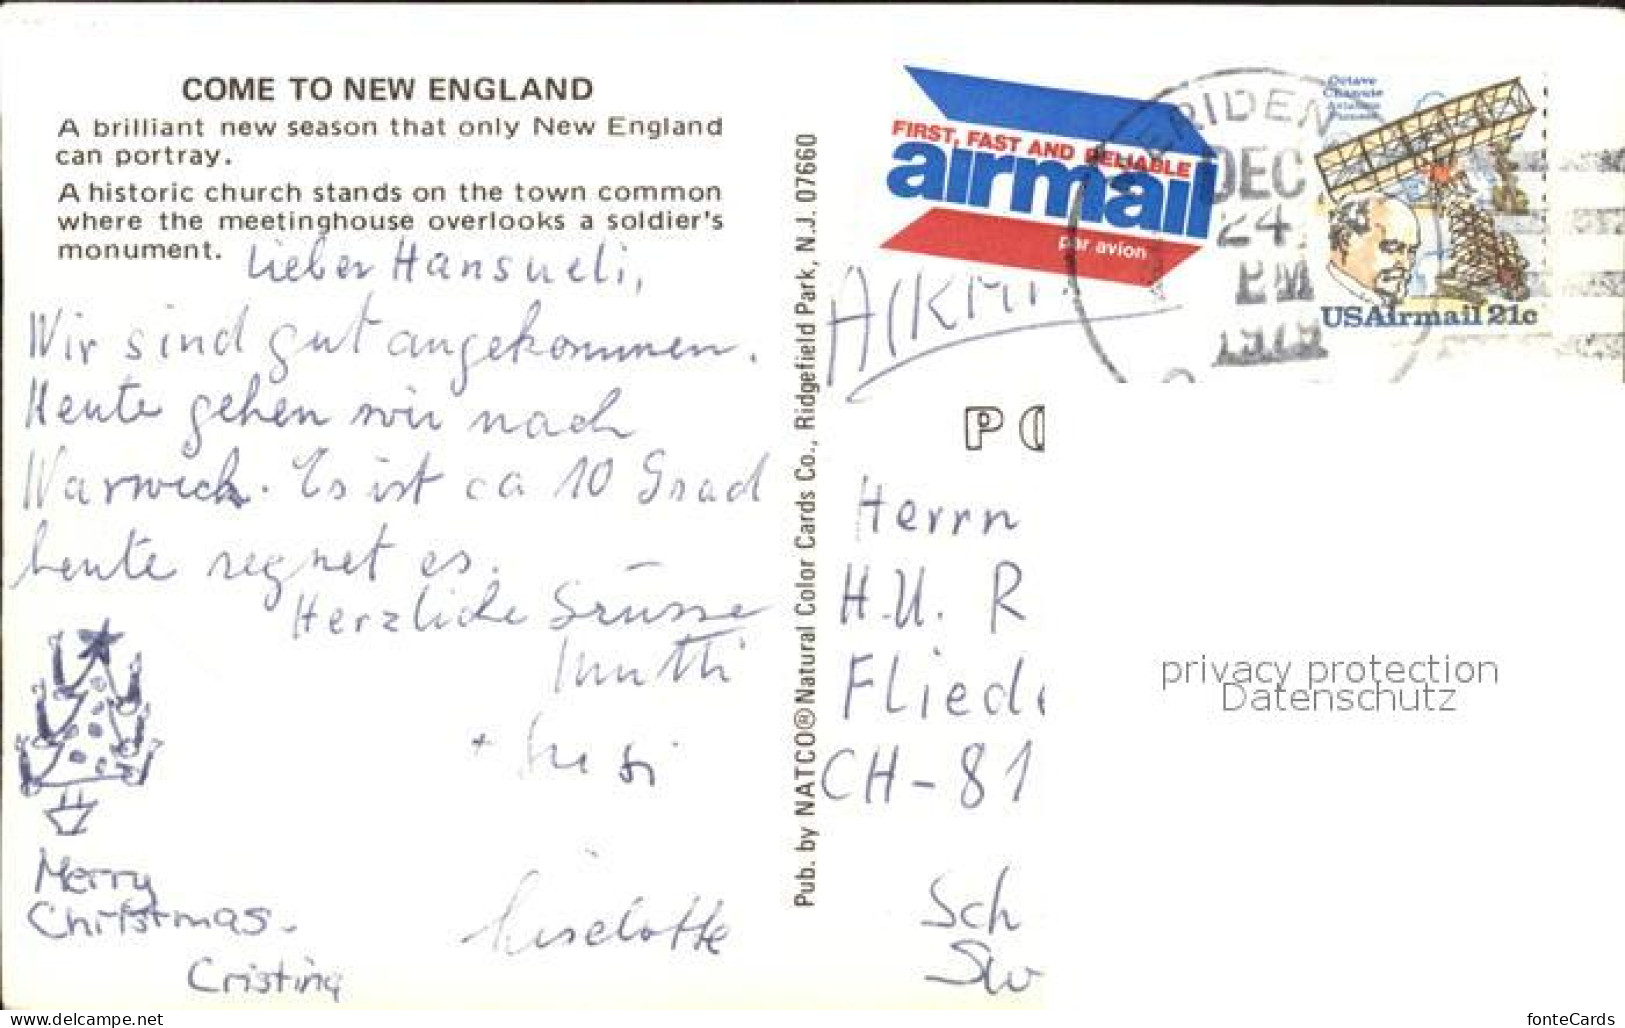 COME TO NEW ENGLAND
A brilliant new season that only New England
can portray.
A historic church stands on the town common
where the meetinghouse overlooks a soldier's
monument.
Lieber Hansueli,
Wir sind gut angekommen.
Heute gehen wir nach
Warwick. Es ist ca 10 Grad
heute regnet es.
Herzliche Grüsse
Mutti
+
Liselotte
Merry
Christmas.
Cristina
Pub. by NATCO® Natural Color Cards Co., Ridgefield Park, N.J. 07660
FIRST, FAST AND RELIABLE
airmail
par avion
RIDEN
DEC
24
PM
Octave
Chanute
Aviation
Pioneer
USAirmail 21c
PO
Herrn
H.U. R
Fliede
CH-81
Sch
Sw
privacy protection
Datenschutz
www.delcampe.net
fonteCards